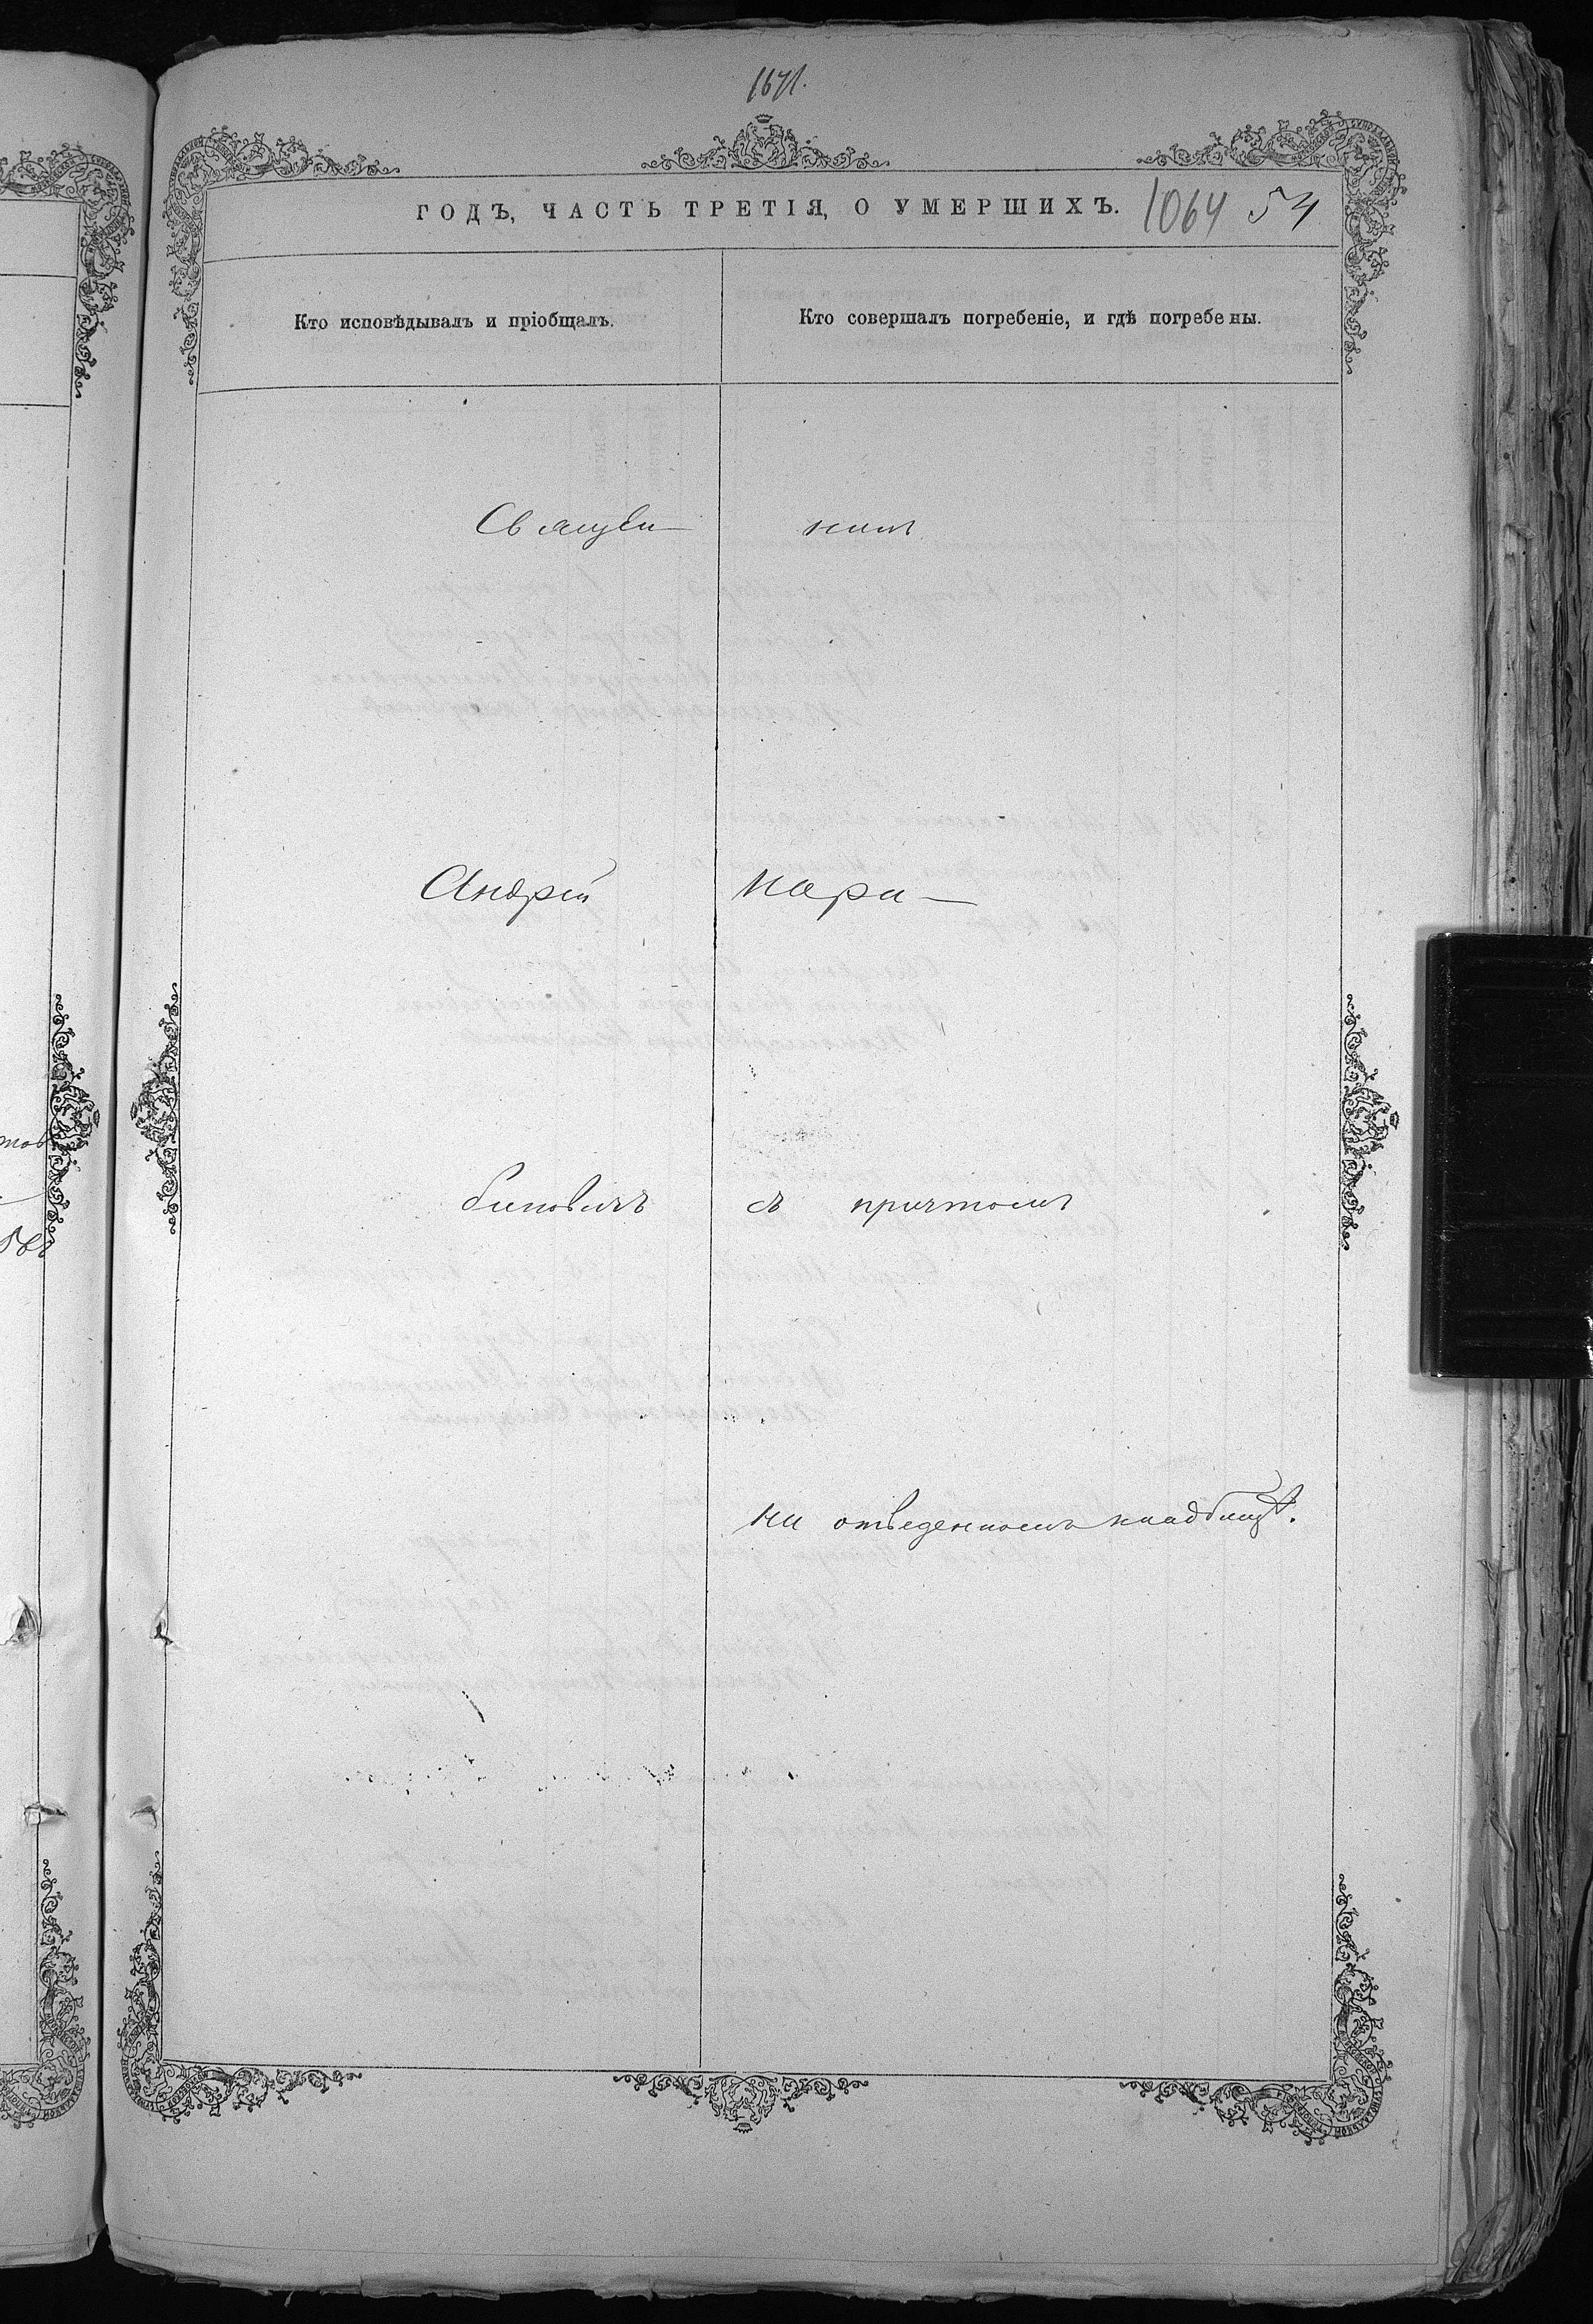 1671.
ГОДЪ, ЧАСТЬ ТРЕТІЯ, О УМЕРШИХЪ. 1064 54
Кто исповѣдывалъ и пріобщалъ.
Кто совершалъ погребеніе, и гдѣ погребены.
Священ никъ
Андрей Кара-
биновичъ съ причтомъ
на отведенномъ кладбищѣ.